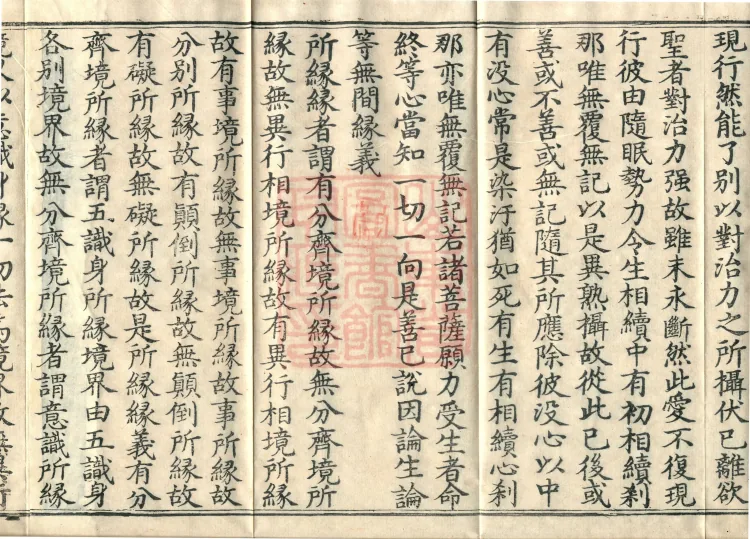 現行然能了別以對治力之所攝伏已離欲
聖者對治力强故雖未永斷然此愛不復現
行彼由隨眠勢力令生相續中有初相續刹
那唯無覆無記以是異熟攝故從此已後或
善或不善或無記隨其所應除彼没心以中
有没心常是染汙猶如死有生有相續心刹
那亦唯無覆無記若諸菩薩願力受生者命
終等心當知一切一向是善已說因論生論
等無間縁義
所縁縁者謂有分齊境所縁故無分齊境所
縁故無異行相境所縁故有異行相境所縁
故有事境所縁故無事境所縁故事所縁故
分別所縁故有顛倒所縁故無顛倒所縁故
有礙所縁故無礙所縁故是所縁縁義有分
齊境所縁者謂五識身所縁境界由五識身
各別境界故無分齊境所縁者謂意識所縁
境以意識身縁一切法為境界故無異行